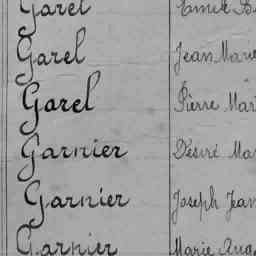 Garel
Garel Jean Marie
Garel Pierre Mar
Garnier Désiré Ma
Garnier Joseph Jean
Garnier Marie Aug